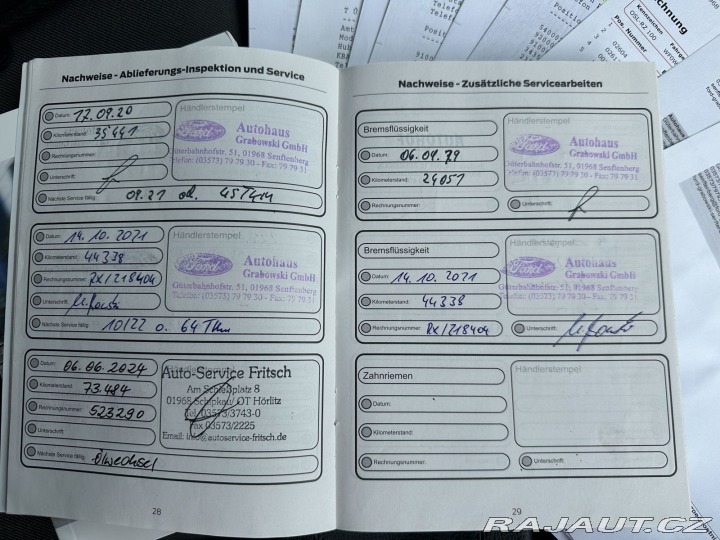 Nachweise - Ablieferungs-Inspektion und Service
Datum: 17.09.20
Kilometerstand: 35441
Rechnungsnummer:
Unterschrift:
Händlerstempel
Ford
Autohaus
Grabowski GmbH
Güterbahnhofstr. 51, 01968 Senftenberg
Telefon: (03573) 79 79 30 - Fax: 79 79 31
Nächste Service fällig: 09.21 od. 45Tkm
Datum: 14.10.2021
Kilometerstand: 44338
Rechnungsnummer: RX/218404
Unterschrift:
Händlerstempel
Ford
Autohaus
Grabowski GmbH
Güterbahnhofstr. 51, 01968 Senftenberg
Telefon: (03573) 79 79 30 - Fax: 79 79 31
Nächste Service fällig: 10/22 o. 64 Tkm
Datum: 06.06.2024
Kilometerstand: 73.484
Rechnungsnummer: 523290
Unterschrift:
Händlerstempel
Auto-Service Fritsch
Am Schloßplatz 8
01968 Schipkau/ OT Hörlitz
Tel. 03573/3743-0
Fax 03573/2225
Email: info@autoservice-fritsch.de
Nächste Service fällig: Ölwechsel
28
Nachweise - Zusätzliche Servicearbeiten
Bremsflüssigkeit
Datum: 06.09.19
Kilometerstand: 24051
Rechnungsnummer:
Händlerstempel
Ford
Autohaus
Grabowski GmbH
Güterbahnhofstr. 51, 01968 Senftenberg
Telefon: (03573) 79 79 30 - Fax: 79 79 31
Unterschrift:
Bremsflüssigkeit
Datum: 14.10.2021
Kilometerstand: 44338
Rechnungsnummer: RX/218404
Händlerstempel
Ford
Autohaus
Grabowski GmbH
Güterbahnhofstr. 51, 01968 Senftenberg
Telefon: (03573) 79 79 30 - Fax: 79 79 31
Unterschrift:
Zahnriemen
Datum:
Kilometerstand:
Rechnungsnummer:
Händlerstempel
Unterschrift:
29
Kennzeichen
OSL-RZ 100
Pos. Nummer
RAJAUT.CZ